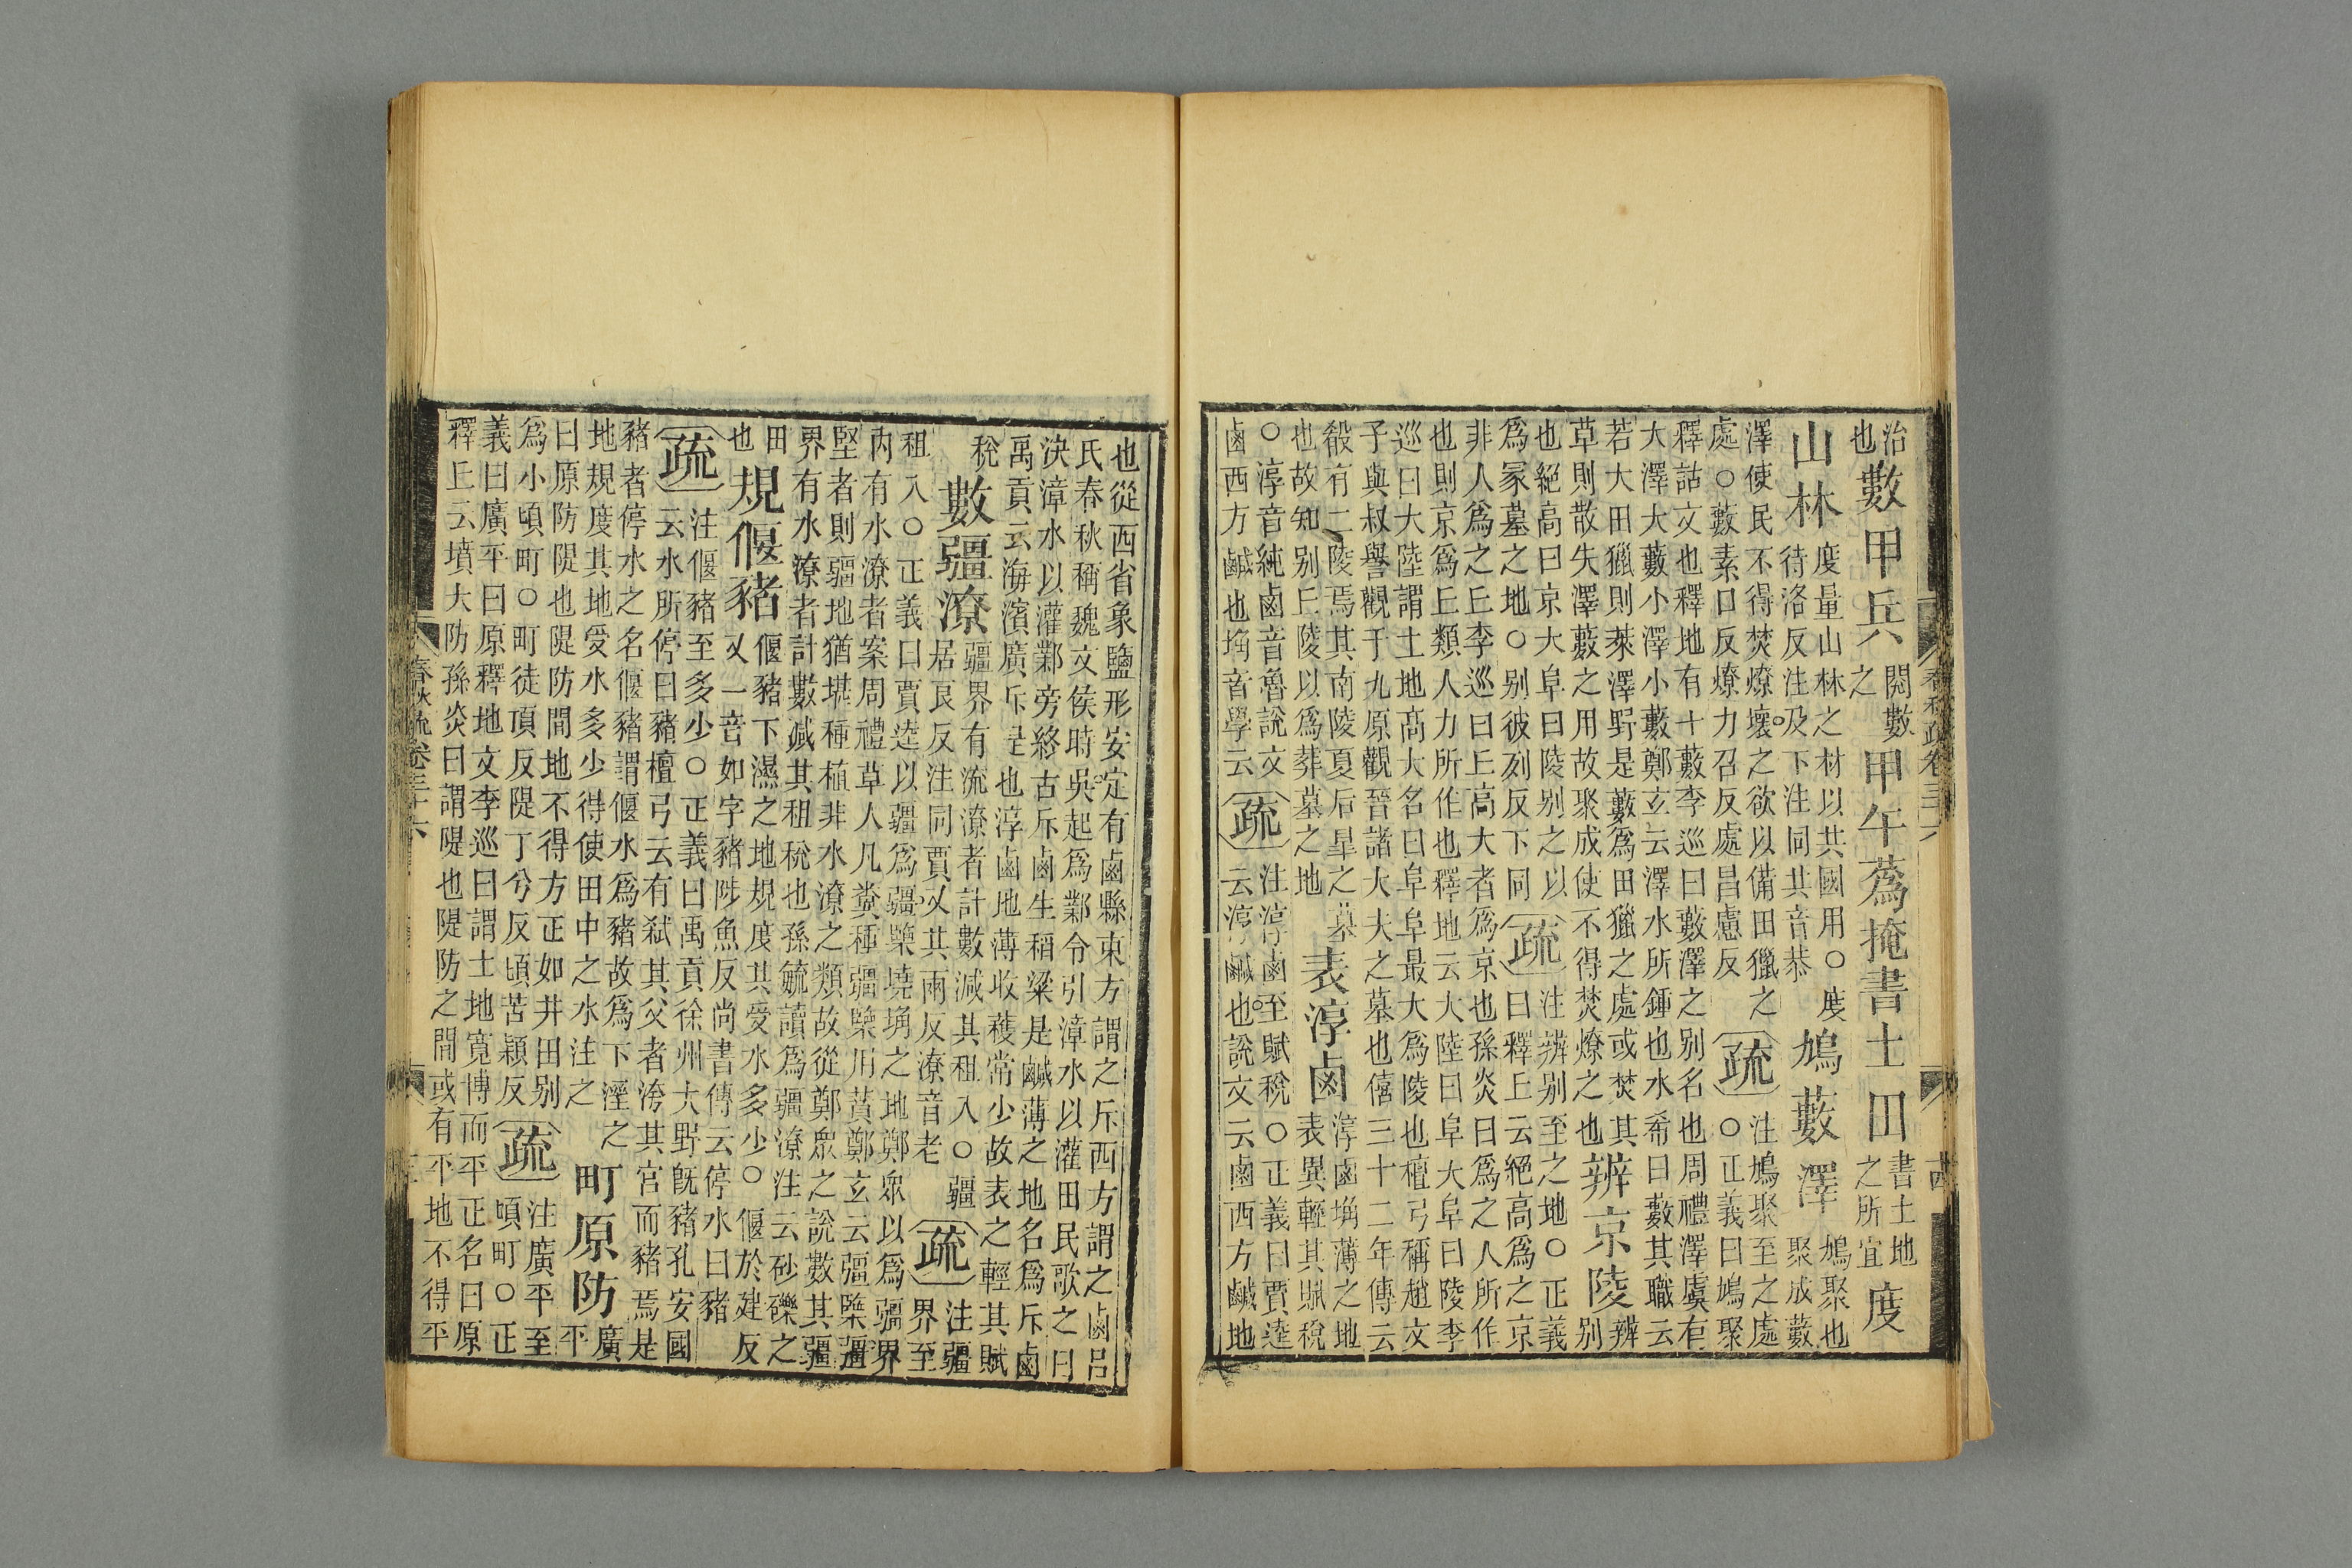 春秋疏卷三十六
治
也
數甲兵
閱數
之
甲午蒍掩書土田
書土地
之所宜
度
山林
度量山林之材以共國用○度
待洛反注及下注同共音恭
鳩藪澤
鳩聚也
聚成藪
澤使民不得焚燎壞之欲以備田獵之
處○藪素口反燎力召反處昌慮反
疏
注鳩聚至之處
○正義曰鳩聚
釋詁文也釋地有十藪李巡曰藪澤之别名也周禮澤虞有
大澤大藪小澤小藪鄭玄云澤水所鍾也水希曰藪其職云
若大田獵則萊澤野是藪爲田獵之處或焚其
草則散失澤藪之用故聚成使不得焚燎之也
辨京陵
辨
别
也絕高曰京大阜曰陵别之以
爲冢墓之地○别彼列反下同
疏
注辨别至之地○正義
曰釋丘云絕高爲之京
非人爲之丘李巡曰丘高大者爲京也孫炎曰爲之人所作
也則京爲丘類人力所作也釋地云大陸曰阜大阜曰陵李
巡曰大陸謂土地高大名曰阜阜最大爲陵也檀弓稱趙文
子與叔譽觀于九原觀晉諸大夫之墓也僖三十二年傳云
殽有二陵焉其南陵夏后皐之墓
也故知别丘陵以爲葬墓之地
表淳鹵
淳鹵埆薄之地
表異輕其賦稅
○淳音純鹵音魯說文
鹵西方鹹也埆音學云
疏
注淳鹵至賦稅○正義曰賈逵
云淳鹹也說文云鹵西方鹹地
也從西省象鹽形安定有鹵縣東方謂之斥西方謂之鹵呂
氏春秋稱魏文侯時吳起爲鄴令引漳水以灌田民歌之曰
決漳水以灌鄴旁終古斥鹵生稻粱是鹹薄之地名爲斥鹵
禹貢云海濱廣斥是也淳鹵地薄收穫常少故表之輕其賦
稅
數疆潦
疆界有流潦者計數減其租入○疆
居良反注同賈又其兩反潦音老
疏
注疆
界至
租入○正義曰賈逵以疆爲疆檃墝埆之地鄭衆以爲疆界
内有水潦者案周禮草人凡糞種疆檃用蕡鄭玄云疆檃疆
堅者則疆地猶堪種植非水潦之類故從鄭衆之說數其疆
界有水潦者計數減其租稅也孫毓讀爲疆潦注云砂礫之
田
也
規偃豬
偃豬下濕之地規度其受水多少○偃於建反
又一音如字豬陟魚反尚書傳云停水曰豬
疏
注偃豬至多少○正義曰禹貢徐州大野旣豬孔安國
云水所停曰豬檀弓云有弑其父者洿其宮而豬焉是
豬者停水之名偃豬謂偃水爲豬故爲下溼之
地規度其地受水多少得使田中之水注之
町原防
廣
平
曰原防隄也隄防間地不得方正如井田别
爲小頃町○町徒頂反隄丁兮反頃苦穎反
疏
注廣平至
頃町○正
義曰廣平曰原釋地文李巡曰謂土地寬博而平正名曰原
釋丘云墳大防孫炎曰謂隄也隄防之間或有平地不得平
春秋疏卷三十六